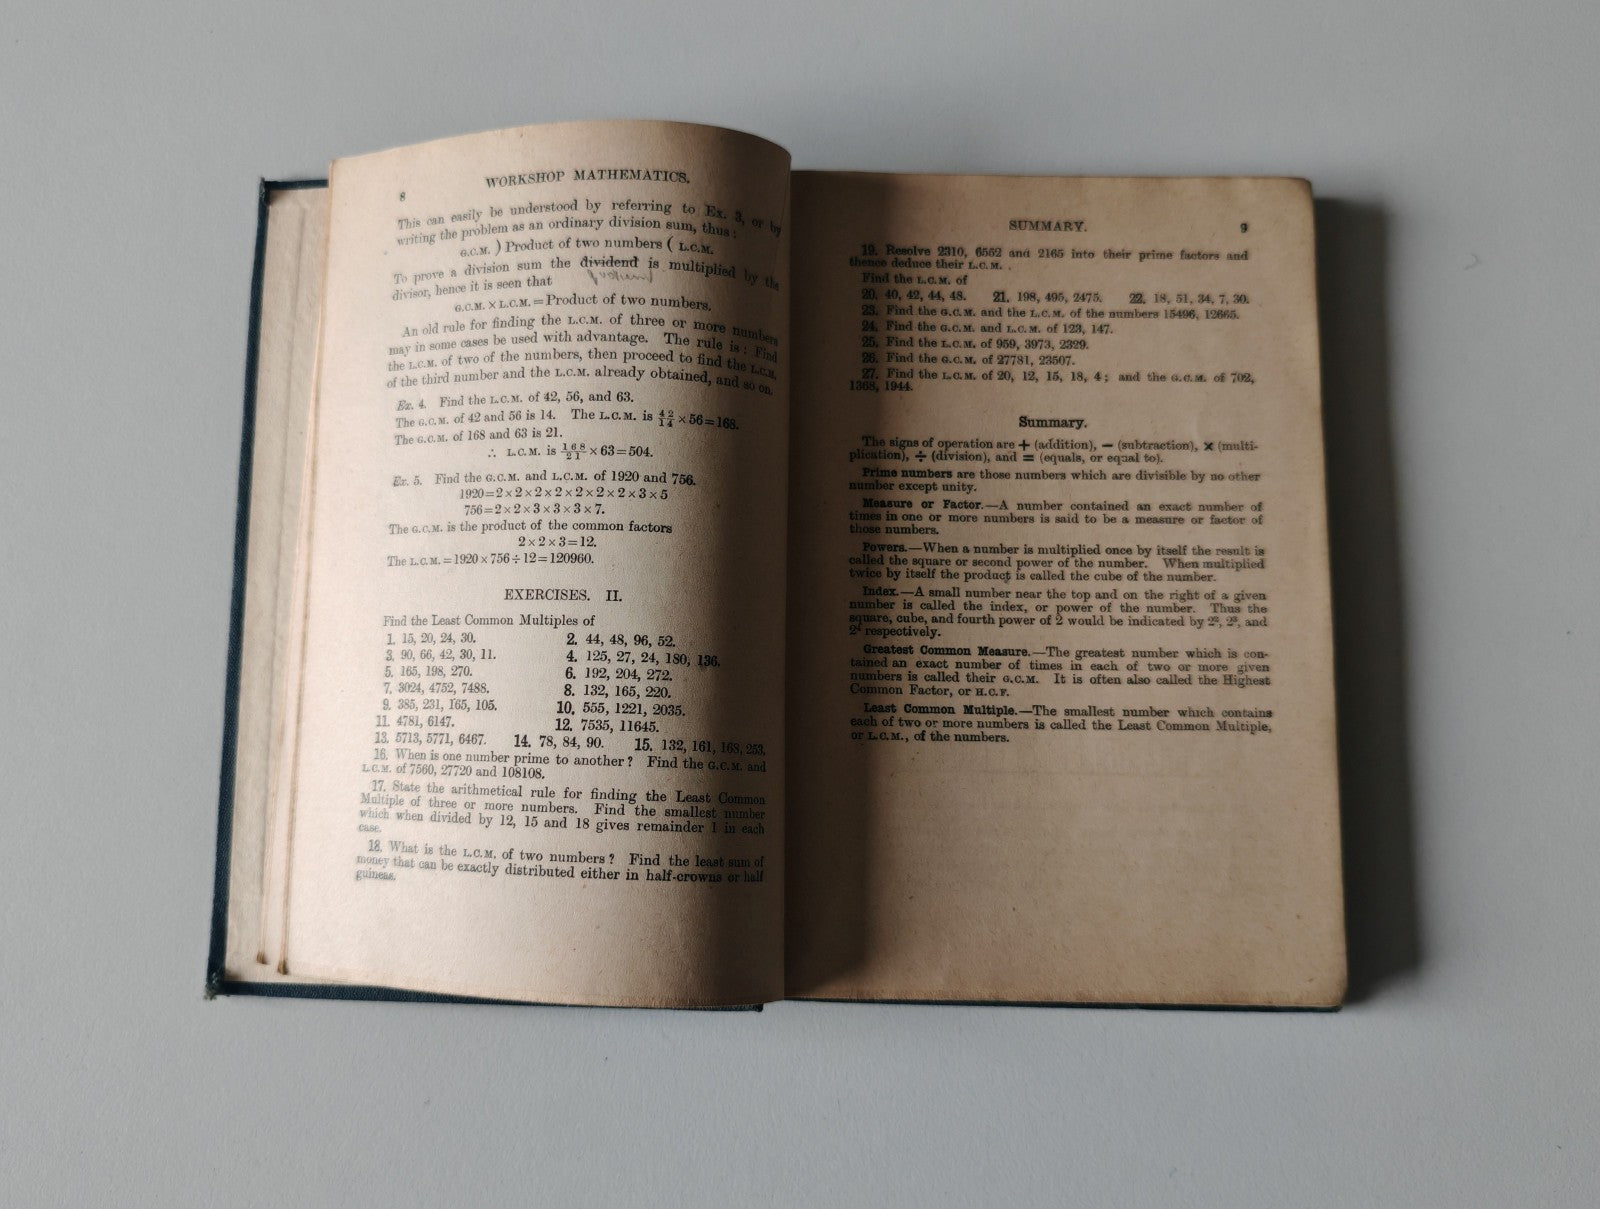 8
WORKSHOP MATHEMATICS.
This can easily be understood by referring to Ex. 3, or by
writing the problem as an ordinary division sum, thus:
G.C.M. ) Product of two numbers ( L.C.M.
To prove a division sum the dividend is multiplied by the
divisor, hence it is seen that
G.C.M. × L.C.M. = Product of two numbers.
An old rule for finding the L.C.M. of three or more numbers
may in some cases be used with advantage. The rule is: Find
the L.C.M. of two of the numbers, then proceed to find the L.C.M.
of the third number and the L.C.M. already obtained, and so on.
Ex. 4. Find the L.C.M. of 42, 56, and 63.
The G.C.M. of 42 and 56 is 14. The L.C.M. is 42/14 × 56 = 168.
The G.C.M. of 168 and 63 is 21.
∴ L.C.M. is 168/21 × 63 = 504.
Ex. 5. Find the G.C.M. and L.C.M. of 1920 and 756.
1920 = 2 × 2 × 2 × 2 × 2 × 2 × 2 × 3 × 5
756 = 2 × 2 × 3 × 3 × 3 × 7.
The G.C.M. is the product of the common factors
2 × 2 × 3 = 12.
The L.C.M. = 1920 × 756 ÷ 12 = 120960.
EXERCISES. II.
Find the Least Common Multiples of
1. 15, 20, 24, 30. 2. 44, 48, 96, 52.
3. 90, 66, 42, 30, 11. 4. 125, 27, 24, 180, 136.
5. 165, 198, 270. 6. 192, 204, 272.
7. 3024, 4752, 7488. 8. 132, 165, 220.
9. 385, 231, 165, 105. 10. 555, 1221, 2035.
11. 4781, 6147. 12. 7535, 11645.
13. 5713, 5771, 6467. 14. 78, 84, 90. 15. 132, 161, 168, 253.
16. When is one number prime to another? Find the G.C.M. and
L.C.M. of 7560, 27720 and 108108.
17. State the arithmetical rule for finding the Least Common
Multiple of three or more numbers. Find the smallest number
which when divided by 12, 15 and 18 gives remainder 1 in each
case.
18. What is the L.C.M. of two numbers? Find the least sum of
money that can be exactly distributed either in half-crowns or half
guineas.
SUMMARY. 9
19. Resolve 2310, 6552 and 2165 into their prime factors and
thence deduce their L.C.M.
Find the L.C.M. of
20. 40, 42, 44, 48. 21. 198, 495, 2475. 22. 18, 51, 34, 7, 30.
23. Find the G.C.M. and the L.C.M. of the numbers 15496, 12665.
24. Find the G.C.M. and L.C.M. of 123, 147.
25. Find the L.C.M. of 959, 3973, 2329.
26. Find the G.C.M. of 27781, 23507.
27. Find the L.C.M. of 20, 12, 15, 18, 4; and the G.C.M. of 702,
1368, 1944.
Summary.
The signs of operation are + (addition), − (subtraction), × (multi-
plication), ÷ (division), and = (equals, or equal to).
Prime numbers are those numbers which are divisible by no other
number except unity.
Measure or Factor.—A number contained an exact number of
times in one or more numbers is said to be a measure or factor of
those numbers.
Powers.—When a number is multiplied once by itself the result is
called the square or second power of the number. When multiplied
twice by itself the product is called the cube of the number.
Index.—A small number near the top and on the right of a given
number is called the index, or power of the number. Thus the
square, cube, and fourth power of 2 would be indicated by 2², 2³, and
2⁴ respectively.
Greatest Common Measure.—The greatest number which is con-
tained an exact number of times in each of two or more given
numbers is called their G.C.M. It is often also called the Highest
Common Factor, or H.C.F.
Least Common Multiple.—The smallest number which contains
each of two or more numbers is called the Least Common Multiple,
or L.C.M., of the numbers.